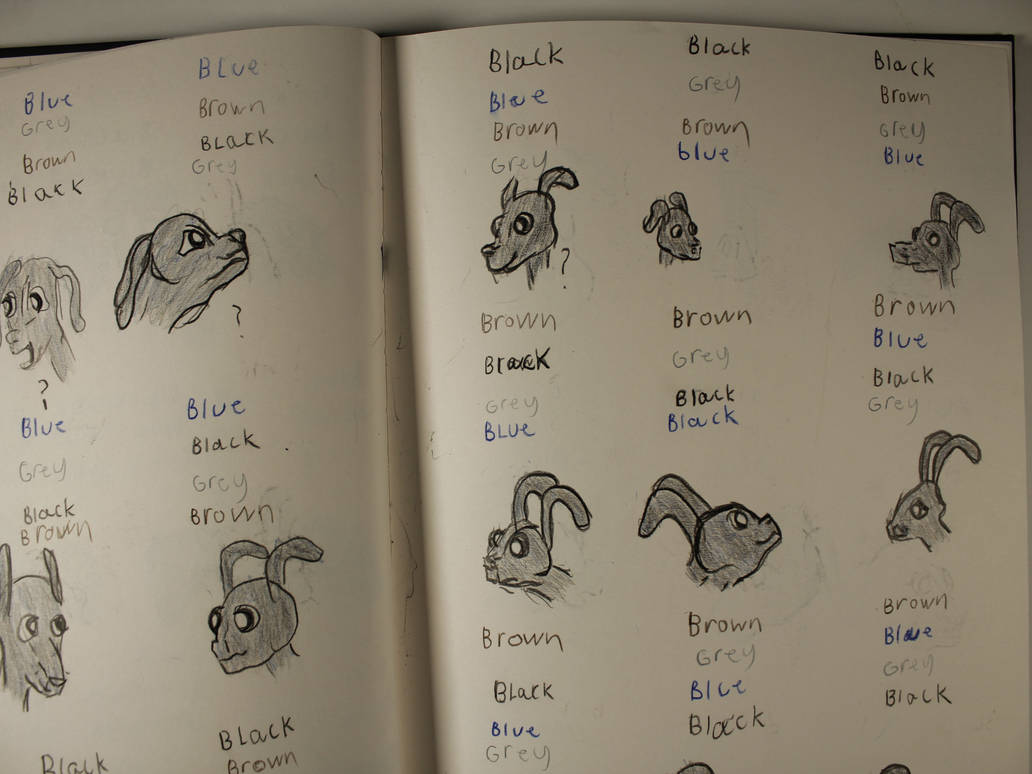 Blue
Grey
Brown
Black
?
Blue
Brown
Black
Grey
?
Blue
Grey
Black
Brown
Blue
Black
Grey
Brown
Black
Black
Brown
Black
Blue
Brown
Grey
?
Black
Grey
Brown
blue
Black
Brown
grey
Blue
Brown
Black
Grey
BLUE
Brown
Grey
Black
Black
Brown
Blue
Black
Grey
Brown
Black
Blue
Grey
Brown
Grey
Blue
Black
Brown
Blue
Grey
Black